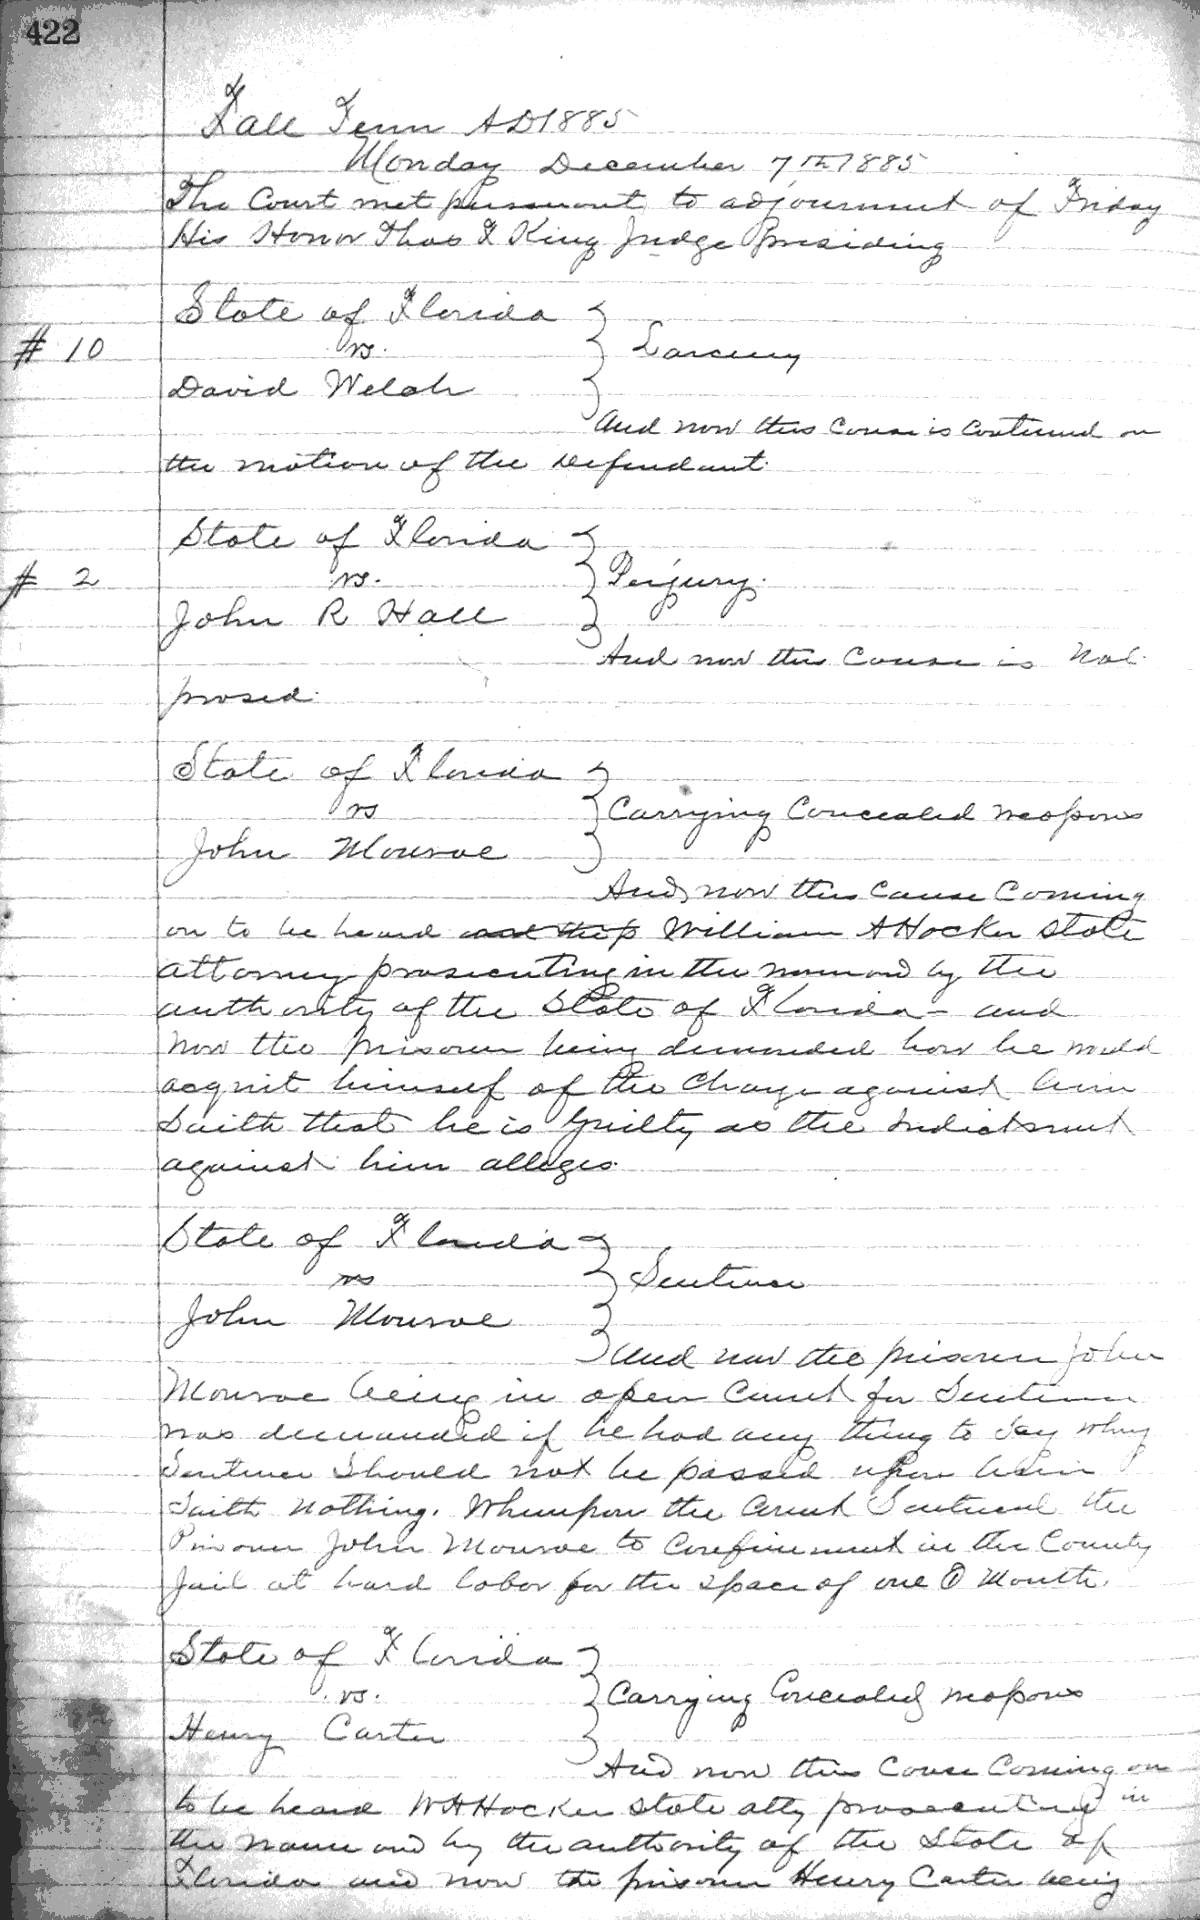 422
Fall Term AD 1885
Monday December 7th 1885
The Court met pursuant to adjournment of Friday
His Honor Thos F King Judge presiding
State of Florida
# 10 vs. Larceny
David Welch
And now this Cause is Continued on
the motion of the Defendant.
State of Florida
# 2 vs. Perjury.
John R Hall
And now this Cause is Nol.
prosed.
State of Florida
vs Carrying Concealed weapons
John Monroe
And now this Cause Coming
on to be heard William A Hocker State
attorney prosecuting in the name and by the
authority of the State of Florida - and
Now the prisoner being demanded how he would
acquit himself of the Charge against him
Saith that he is Guilty as the Indictment
against him alleges.
State of Florida
vs Sentence
John Monroe
And now the prisoner John
Monroe being in open Court for Sentence
was demanded if he had any thing to Say why
Sentence Should not be passed upon him
Saith Nothing. Whereupon the Court Sentenced the
Prisoner John Monroe to Confinement in the County
Jail at hard labor for the space of one (1) Month.
State of Florida
vs. Carrying Concealed weapons
Henry Carter
And now this Cause Coming on
to be heard W A Hocker State atty prosecuting in
the name and by the authority of the State of
Florida and now the prisoner Henry Carter being